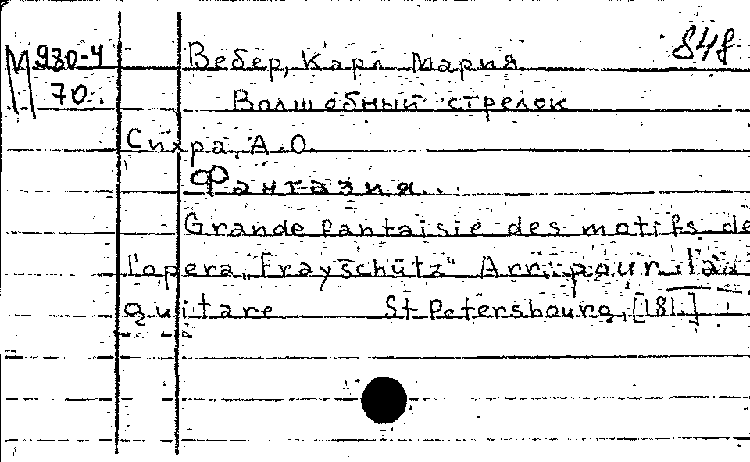 848
М 930-4 Вебер, Карл Мария
70. Волшебный стрелок
Сихра, А.О.
Фантазия..
Grande fantaisie des motifs de
l'opera „Frayschütz" Arr. pour la
guitare St-Petersbourg, [181.]